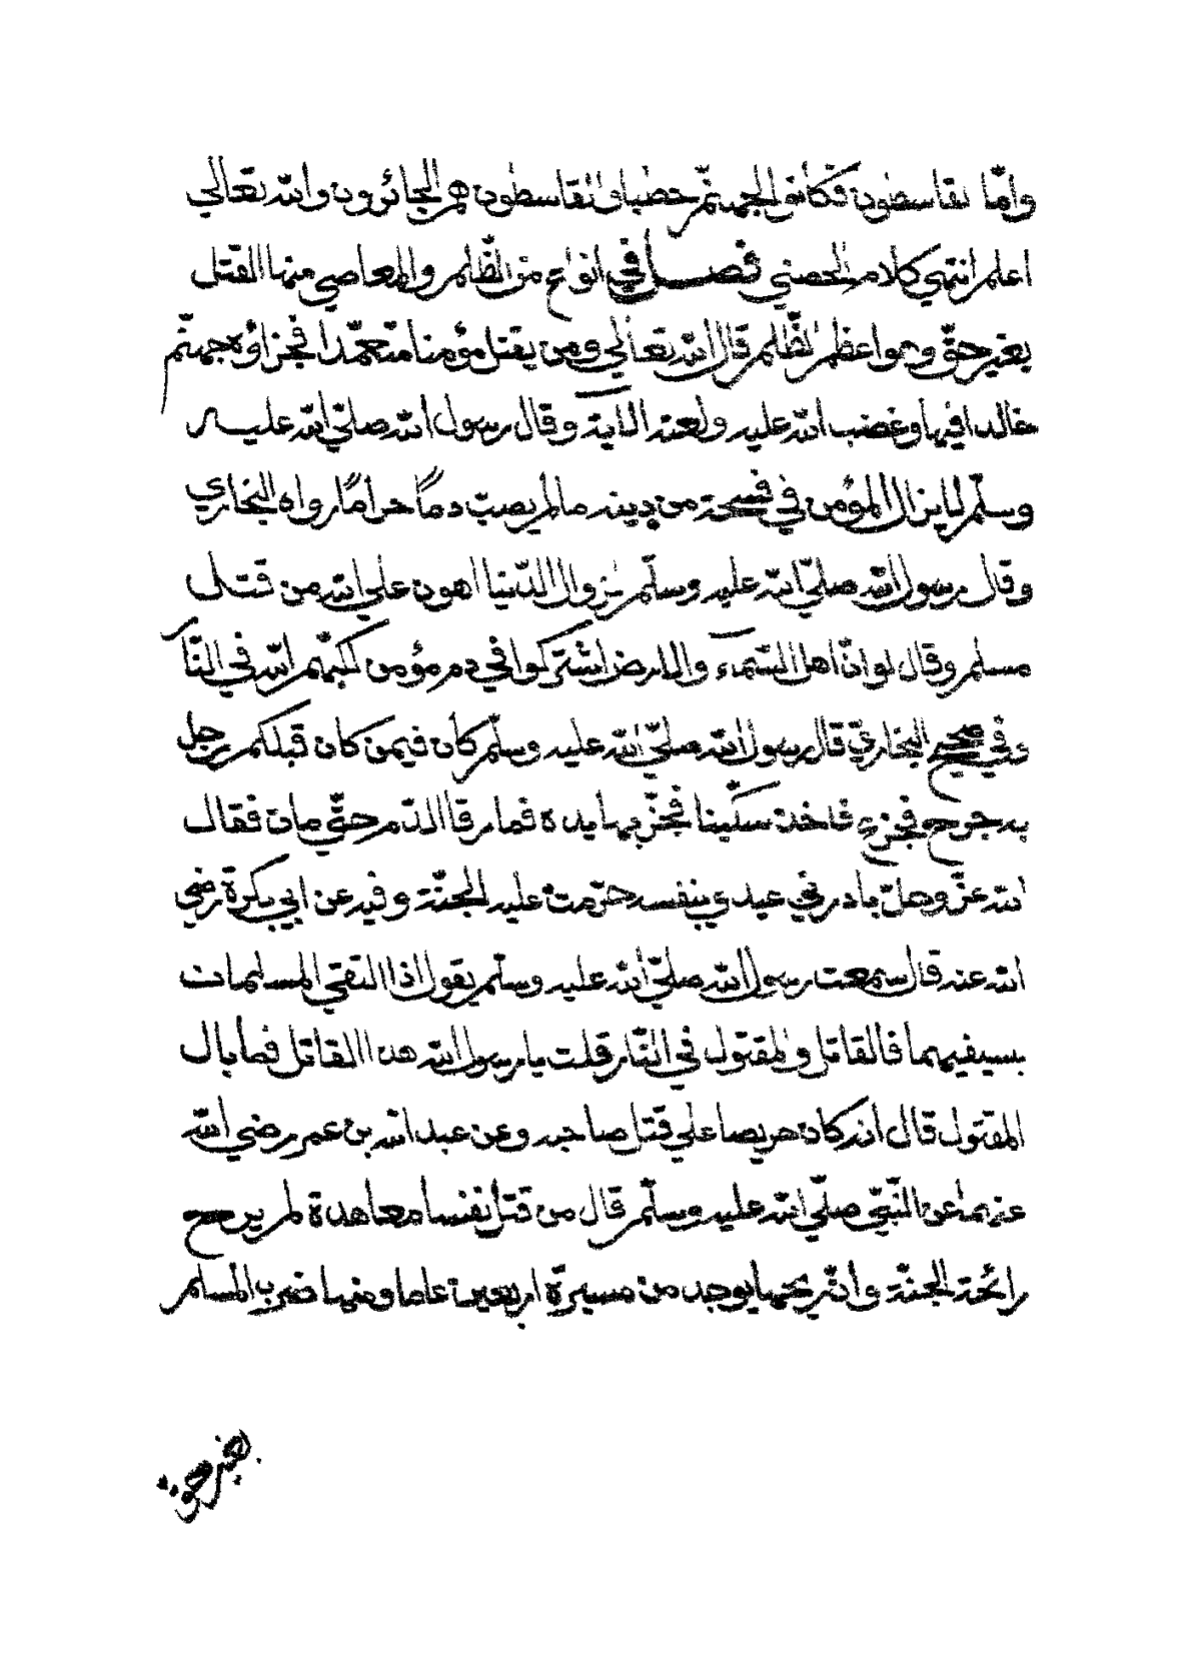 وامّا القاسطون فكانوا لجهنّم حطبا والقاسطون هم الجائرون والله تعالي
اعلم انتهي كلام الحصني فصل في انواع من الظّلم والمعاصي منها القتل
بغير حقّ وهو اعظم الظّلم قال الله تعالي ومن يقتل مؤمنا متعمّدا فجزاؤه جهنّم
خالدا فيها وغضب الله عليه ولعنه الاية وقال رسول الله صلّي الله عليه
وسلّم لا يزال المؤمن في فسحة من دينه ما لم يصب دمًا حرامًا رواه البخاري
وقال رسول الله صلّي الله عليه وسلّم لزوال الدّنيا اهون علي الله من قتل
مسلم وقال لو انّ اهل السّماء والارض اشتركوا في دم مؤمن لكبّهم الله في النّار
وفي صحيح البخاريّ قال رسول الله صلّي الله عليه وسلّم كان فيمن كان قبلكم رجل
به جرح فجزع فاخذ سكّينا فجزّ بها يده فما رقا الدّم حتّي مات فقال
الله عزّ وجلّ بادرني عبدي بنفسه حرّمت عليه الجنّة وفيه عن ابي بكرة رضي
الله عنه قال سمعت رسول الله صلّي الله عليه وسلّم يقول اذا التقي المسلمان
بسيفيهما فالقاتل والمقتول في النّار قلت يا رسول الله هذا القاتل فما بال
المقتول قال انه كان حريصا علي قتل صاحبه وعن عبد الله بن عمر رضي الله
عنهما عن النّبيّ صلّي الله عليه وسلّم قال من قتل نفسا معاهدة لم يرح
رائحة الجنّة وانّ ريحها يوجد من مسيرة اربعين عاما ومنها ضرب المسلم
بغير حق